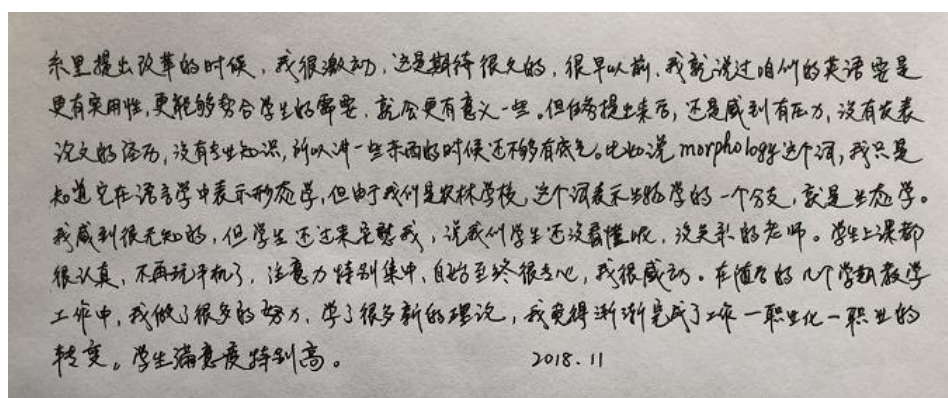 系里提出改革的时候，我很激动，这是期待很久的，很早以前，我就说过咱们的英语要是
更有实用性，更能够契合学生的需要，就会更有意义一些。但任务提出来后，还是感到有压力，没有发表
论文的经历，没有专业知识，所以讲一些东西的时候还不够有底气。比如说morphology这个词，我只是
知道它在语言学中表示形态学，但由于我们是农林学校，这个词表示生物学的一个分支，就是生态学。
我感到很无知的，但学生还过来安慰我，说我们学生还没看懂呢，没关系的老师。学生上课都
很认真，不再玩手机了，注意力特别集中，自始至终很专心，我很感动。在随后的几个学期教学
工作中，我做了很多的努力，学了很多新的理论，我觉得渐渐完成了工作—职业化—职业的
转变。学生满意度特别高。 2018.11